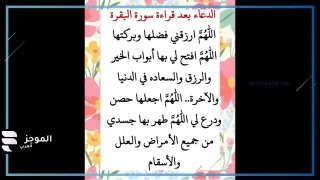 الدعاء بعد قراءة سورة البقرة
اللَّهُمَّ ارزقني فضلها وبركتها
اللَّهُمَّ افتح لي بها أبواب الخير
والرزق والسعاده في الدنيا
والآخرة.. اللَّهُمَّ اجعلها حصن
ودرع لي اللَّهُمَّ طهر بها جسدي
من جميع الأمراض والعلل
والأسقام
الموجز
العربي